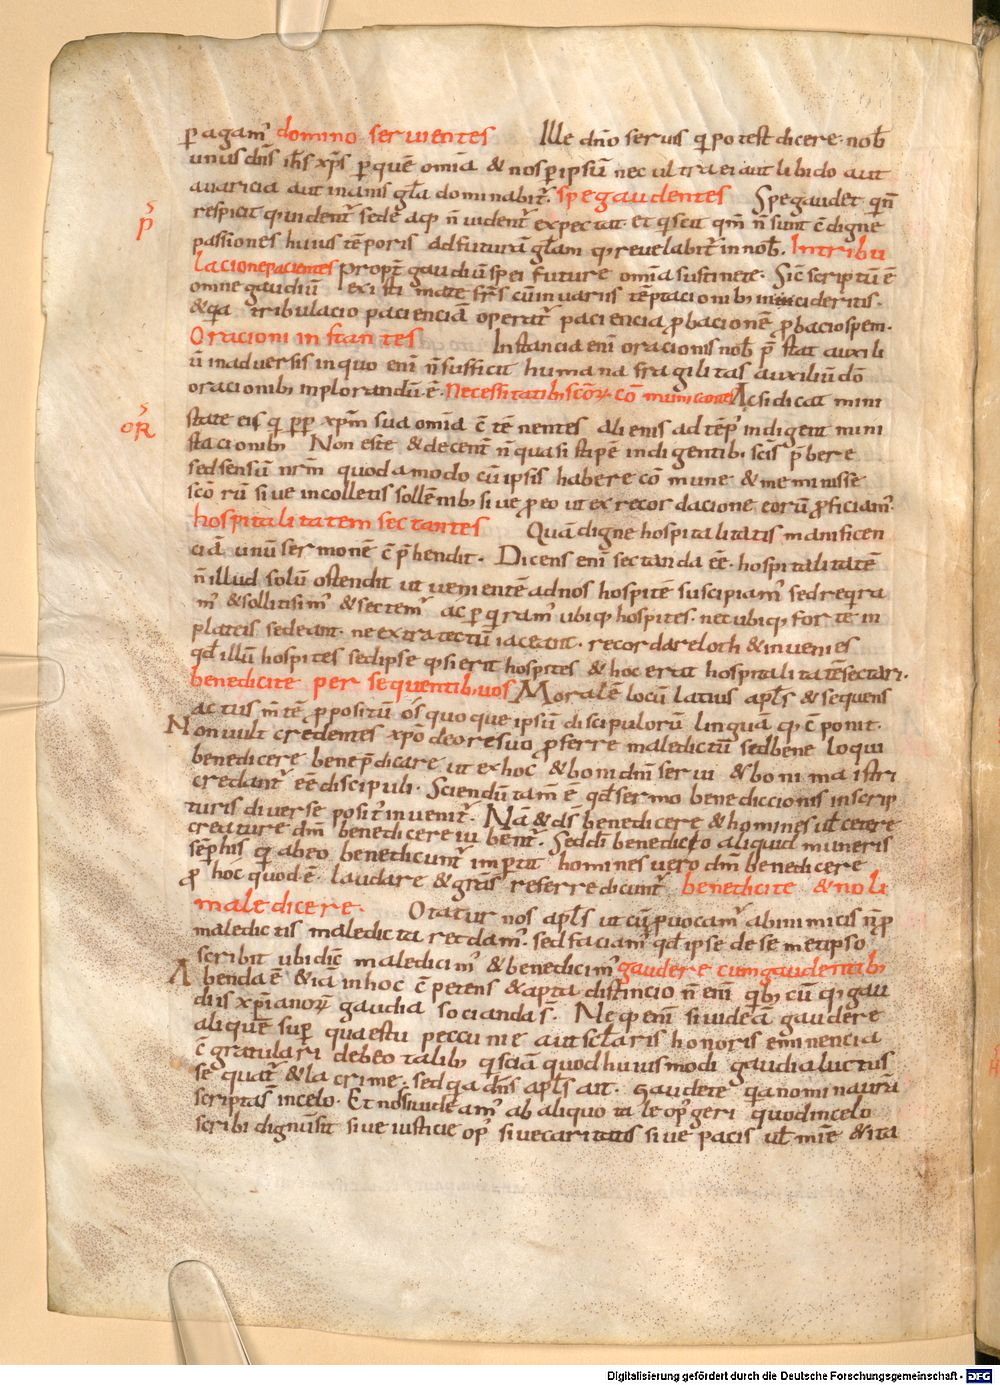 ꝑagam̄ domino seruientes Ille dn̄o seruis q̇ potest dicere· nob̄
unus dn̄s ih̄s xp̄s ꝑ quē om̄ia & nos ꝑ ipsū nec ultra ei aut libido aut
auaricia aut inanis gl̄a dominabit᷑. spe gaudentes Spe gaudet qn̄
respicit q̇ uident᷑ sed ea q̄ n̄ uident᷑ expectat. et qi scit qm̄ n̄ sunt c̄digne
passiones huius tēporis ad futurā gl̄am q̄ reuelabit᷑ in nob̄. Intribu
lacione pacientes Propt̄ gaudiū spei future om̄ia sustinete· Sic̄ scriptū ē
omne gaudiū existimate fr̄s cū in uariis tēptacionib; incideritis·
& qa tribulacio pacienciā operat᷑ paciencia ꝓbacionē ꝓbacio spem·
Oracioni instantes Instancia eni oracionis nob̄ p̄stat auxili
ū in aduersis in quo eni n̄ sufficit humana fragilitas auxiliū dō
oracionib; inplorandū ē· Necessitatib; sc̄oꝝ cōmunicantes Ac si dicat mini
state eis q̇ ꝓpt̄ xp̄m sua om̄ia c̄tēnentes alienis ad tēp᷑ indigent mini
stacionib; Non estē & decent n̄ quasi stipē indigentib; scis p̄bere
sed sensū nr̄m quodamodo cū ipsis habere cōmune· & meminisse
sc̄orū siue in colletis sollēnib; siue ꝓ eo ut ex recordacione eorū ꝓficiam᷑·
hospitalitatem sectantes Quā digne hospitalitatis manificen
ciā unū sermonē c̄p̄hendit· Dicens eni sectanda ēē· hospitalitatē
n̄ illud solū ostendit ut uenientē ad nos hospitē suscipiam᷑ sed req̇ra
m᷑ & sollitisim᷑ & sectem᷑ ac ꝑq̇ram᷑ ubiq; hospites· nec ubiq; forte in
plateis sedeant· ne extra tectū iaceant· recordare loth & inuenies
qd̄ illū hospites sed ipse q̄sierit hospites & hoc erat hospitalitatē sectari·
benedicite persequentib; uos Moralē locū latius apl̄s & sequens
actus m̄tē ꝓpositū os quoque ipsū discipulorū linguā q̄ c̄ponit·
Non uult credentes xp̄o deo resuo ꝓferre maledictū sed bene loqui
benedicere bene p̄dicare ut ex hoc & boni dn̄i serui & boni maistri
credant᷑ ēē discipuli· Sciendū tam̄ ē qd̄ sermo benediccionis in scrip
turis diuerse posit᷑ inuenit᷑· Nā & ds̄ benedicere & homines ul̄ cetere
creature dn̄m benedicere iubent᷑· Sed dn̄i benedictio aliquid muneris
semp̄ his q̇ ab eo benedicunt᷑ impertit homines uero dn̄m benedicere
ꝓ hoc quod ē· laudare & gr̄as referre dicunt᷑ benedicite & noli
maledicere· Ortatur nos apl̄s ut cū ꝓuocam᷑ ab inimicis n̄ ꝓ
maledictis maledicta reddam᷑· sed faciam᷑ qd̄ ipse de semetipso
scribit ubi dic̄ maledicim᷑ & benedicim᷑ gaudere cum gaudentib;
Abenda ē & iā in hoc c̄petens & apta distincio n̄ eni qb; cū q̇ gau
diis xp̄ianorꝝ gaudia socianda s̄· Neq; eni si uideā gaudere
aliquē sup̄ quaestu peccunie aut sc̄laris honoris eminencia
c̄gratulari debeo talib; q̇ sciā quod huiusmodi gaudia luctus
sequat᷑ & lacrime· sed qa dn̄s apl̄s ait· Gaudete qa nomina urā
scripta s̄ in celo· Et nos si uideam᷑ ab aliquo tale op᷑ geri quod in celo
scribi dignū sit siue iusticie op᷑ siue caritatis siue pacis ul̄ mīe & ita